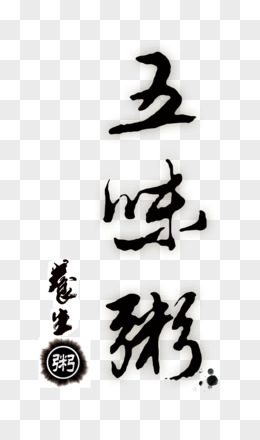 五味粥
養生
粥